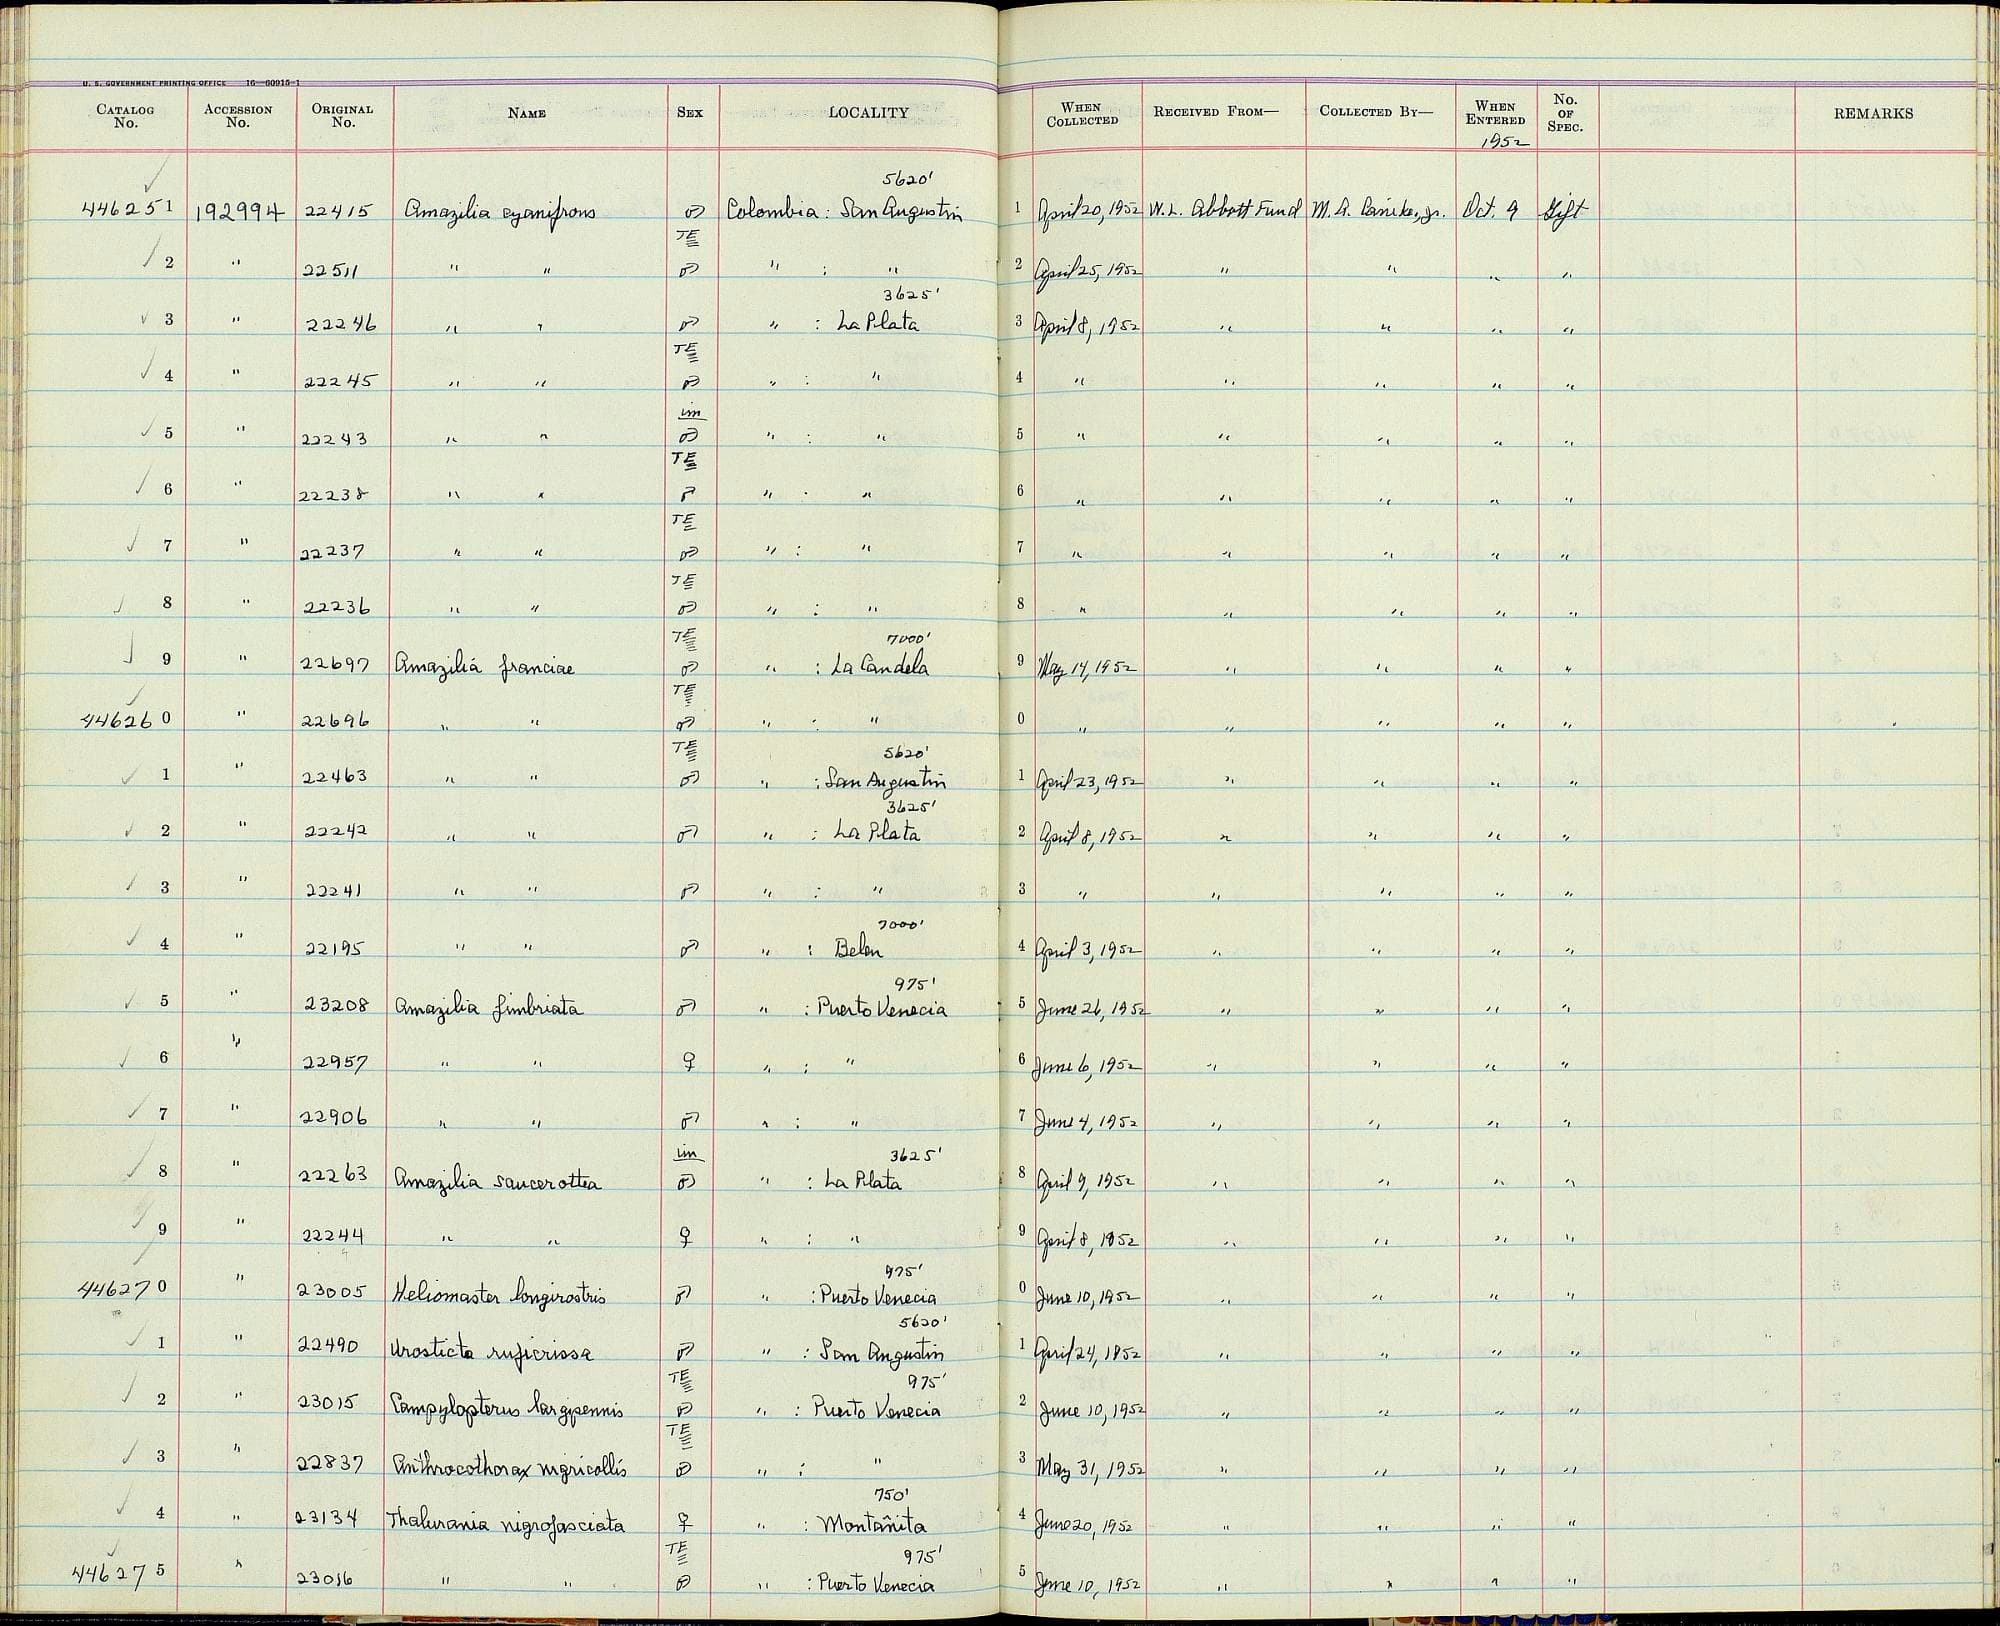 U. S. GOVERNMENT PRINTING OFFICE 16—60915-1
CATALOG No. ACCESSION No. ORIGINAL No. NAME SEX LOCALITY WHEN COLLECTED RECEIVED FROM— COLLECTED BY— WHEN ENTERED No. OF SPEC. REMARKS
1952
5620'
446251 192994 22415 Amazilia cyanifrons ♂ Colombia: San Augustin 1 April 20, 1952 W. L. Abbott Fund M. A. Carriker, Jr. Oct. 9 Gift
TE
2 " 22511 " " ♂ " : " 2 April 25, 1952 " " " "
3625'
3 " 22246 " " ♂ " : La Plata 3 April 8, 1952 " " " "
TE
4 " 22245 " " ♂ " : " 4 " " " " "
im
5 " 22243 " " ♂ " : " 5 " " " " "
TE
6 " 22238 " " ♂ " : " 6 " " " " "
TE
7 " 22237 " " ♂ " : " 7 " " " " "
TE
8 " 22236 " " ♂ " : " 8 " " " " "
TE 7000'
9 " 22697 Amazilia franciae ♂ " : La Candela 9 May 14, 1952 " " " "
TE
446260 " 22696 " " ♂ " : " 0 " " " " "
TE 5620'
1 " 22463 " " ♂ " : San Augustin 1 April 23, 1952 " " " "
3625'
2 " 22242 " " ♂ " : La Plata 2 April 8, 1952 " " " "
3 " 22241 " " ♂ " : " 3 " " " " "
7000'
4 " 22195 " " ♂ " : Belen 4 April 3, 1952 " " " "
975'
5 " 23208 Amazilia fimbriata ♂ " : Puerto Venecia 5 June 26, 1952 " " " "
6 " 22957 " " ♀ " : " 6 June 6, 1952 " " " "
7 " 22906 " " ♂ " : " 7 June 4, 1952 " " " "
im 3625'
8 " 22263 Amazilia saucerottea ♂ " : La Plata 8 April 9, 1952 " " " "
9 " 22244 " " ♀ " : " 9 April 8, 1952 " " " "
975'
446270 " 23005 Heliomaster longirostris ♂ " : Puerto Venecia 0 June 10, 1952 " " " "
5620'
1 " 22490 Urosticte ruficrissa ♂ " : San Angustin 1 April 24, 1952 " " " "
TE 975'
2 " 23015 Campylopterus largipennis ♂ " : Puerto Venecia 2 June 10, 1952 " " " "
TE
3 " 22837 Anthrocothorax nigricollis ♂ " : " 3 May 31, 1952 " " " "
750'
4 " 23134 Thalurania nigrofasciata ♀ " : Montañita 4 June 20, 1952 " " " "
TE 975'
446275 " 23016 " " ♂ " : Puerto Venecia 5 June 10, 1952 " " " "